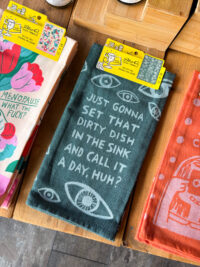 MENOPAUSE
WHAT THE
FUCK?
JUST GONNA
SET THAT
DIRTY DISH
IN THE SINK
AND CALL IT
A DAY, HUH?